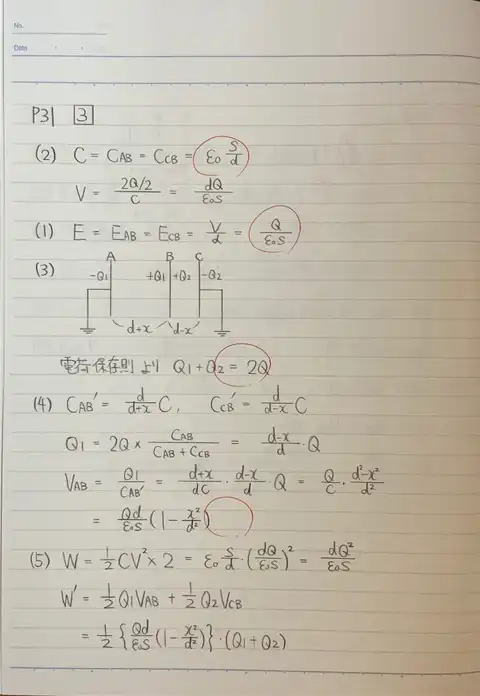 No.
Date
P31 3
(2) C = C_AB = C_CB = ε₀ S/d
V = (2Q/2)/C = dQ/ε₀S
(1) E = E_AB = E_CB = V/d = Q/ε₀S
(3) A B C
-Q₁ +Q₁ +Q₂ -Q₂
d+x d-x
電荷保存則 より Q₁+Q₂ = 2Q
(4) C_AB' = d/(d+x) C, C_CB' = d/(d-x) C
Q₁ = 2Q × C_AB/(C_AB + C_CB) = (d-x)/d · Q
V_AB = Q₁/C_AB' = (d+x)/dC · (d-x)/d · Q = Q/C · (d²-x²)/d²
= Qd/ε₀S (1 - x²/d²)
(5) W = 1/2 CV² × 2 = ε₀ S/d · (dQ/ε₀S)² = dQ²/ε₀S
W' = 1/2 Q₁V_AB + 1/2 Q₂V_CB
= 1/2 {Qd/ε₀S (1 - x²/d²)} · (Q₁+Q₂)